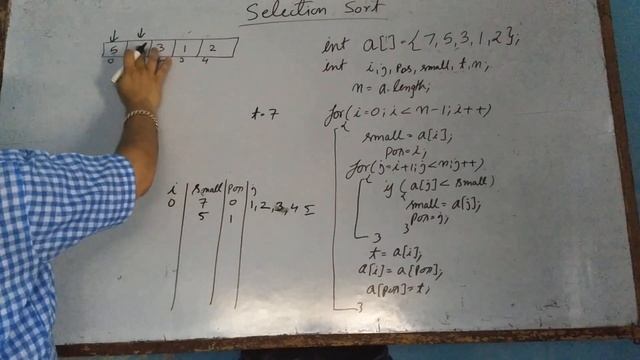 Selection Sort
5 3 1 2
0 3 4
int a[]={7,5,3,1,2};
int i,j, pos, small, t, n;
n = a.length;
t=7
for(i=0; i<n-1; i++)
{
small = a[i];
pos=i;
for(j=i+1; j<n; j++)
{
if (a[j] < small)
{
small = a[j];
pos=j;
}
}
t = a[i];
a[i] = a[pos];
a[pos]=t;
}
i small pos j
0 7 0 1, 2, 3, 4 5
5 1